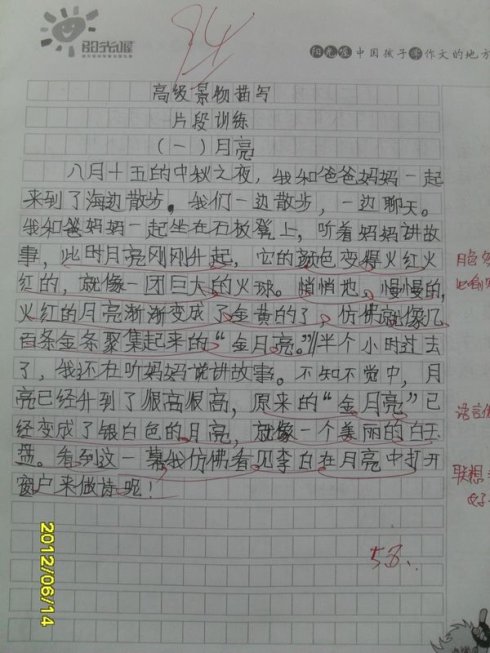 阳光喔
94
阳光喔 中国孩子 作文的地方
高级景物描写
片段训练
(一)月亮
八月十五的中秋之夜，我和爸爸妈妈一起
来到了海边散步。我们一边散步，一边聊天。
我和爸妈妈一起坐在石板凳上，听着妈妈讲故
事，此时月亮刚刚升起，它的颜色变得火红火
红的，就像一团巨大的火球。悄悄地，慢慢的，
火红的月亮渐渐变成了金黄的了，仿佛就像几
百条金条聚集起来的“金月亮。”半个小时过去
了，我还在听妈妈说讲故事。不知不觉中，月
亮已经升到了很高很高，原来的“金月亮”已
经变成了银白色的月亮，就像一个美丽的白玉
盘。看到这一幕我仿佛看见李白在月亮中打开
窗户来做诗呢！
月色
语言
联想
好
58
2012/06/14